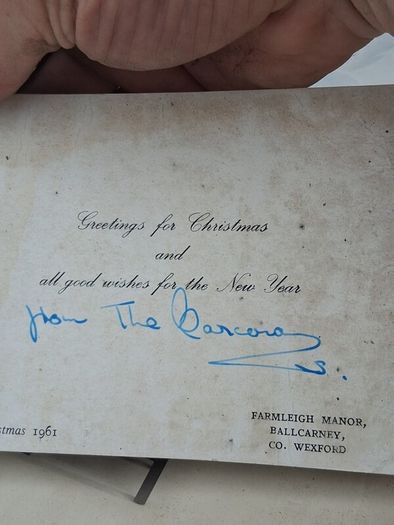 Greetings for Christmas
and
all good wishes for the New Year
from The
stmas 1961
FARMLEIGH MANOR,
BALLCARNEY,
CO. WEXFORD